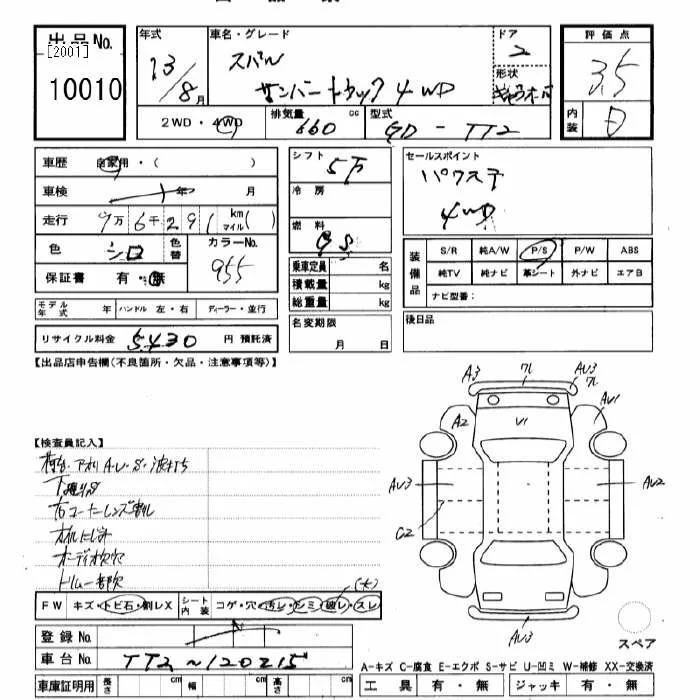 出品No.
[2001]
10010
年式
13/8月
車名・グレード
スバル
サンバートラック 4WD
ドア
2
形状
評価点
3.5
内装
D
2WD・4WD
排気量
660
cc
型式
GD-TT2
車歴
自家用・( )
車検
年 月
走行
7万6千291 km マイル ( )
色
シロ
色替
カラーNo.
955
保証書 有・無
モデル年式 年 ハンドル 左・右 ディーラー・並行
リサイクル料金 5430 円 預託済
シフト
5F
冷房
燃料
GS
乗車定員 名
積載量 kg
総重量 kg
名変期限
月 日
セールスポイント
パワステ
4WD
装備品
S/R 純A/W P/S P/W ABS
純TV 純ナビ 革シート 外ナビ エアB
ナビ型番:
後日品
【出品店申告欄(不良箇所・欠品・注意事項等)】
【検査員記入】
荷台・アオリ A・U・S・波打ち
下廻りS
右コーナーレンズ割れ
オイルにじみ
オーディオ欠穴
トリム一部欠
(大)
FW キズ・トビ石・割レX シート内装 コゲ・穴・汚レ・シミ・破レ・スレ
登録No.
車台No. TT2～120215
車庫証明用 長さ cm 幅 cm 高さ cm
A3
ワレ
AU3
ワレ
A2
V1
AU1
AU3
AU2
C2
AU3
スペア
A-キズ C-腐食 E-エクボ S-サビ U-凹ミ W-補修 XX-交換済
工具 有・無 ジャッキ 有・無